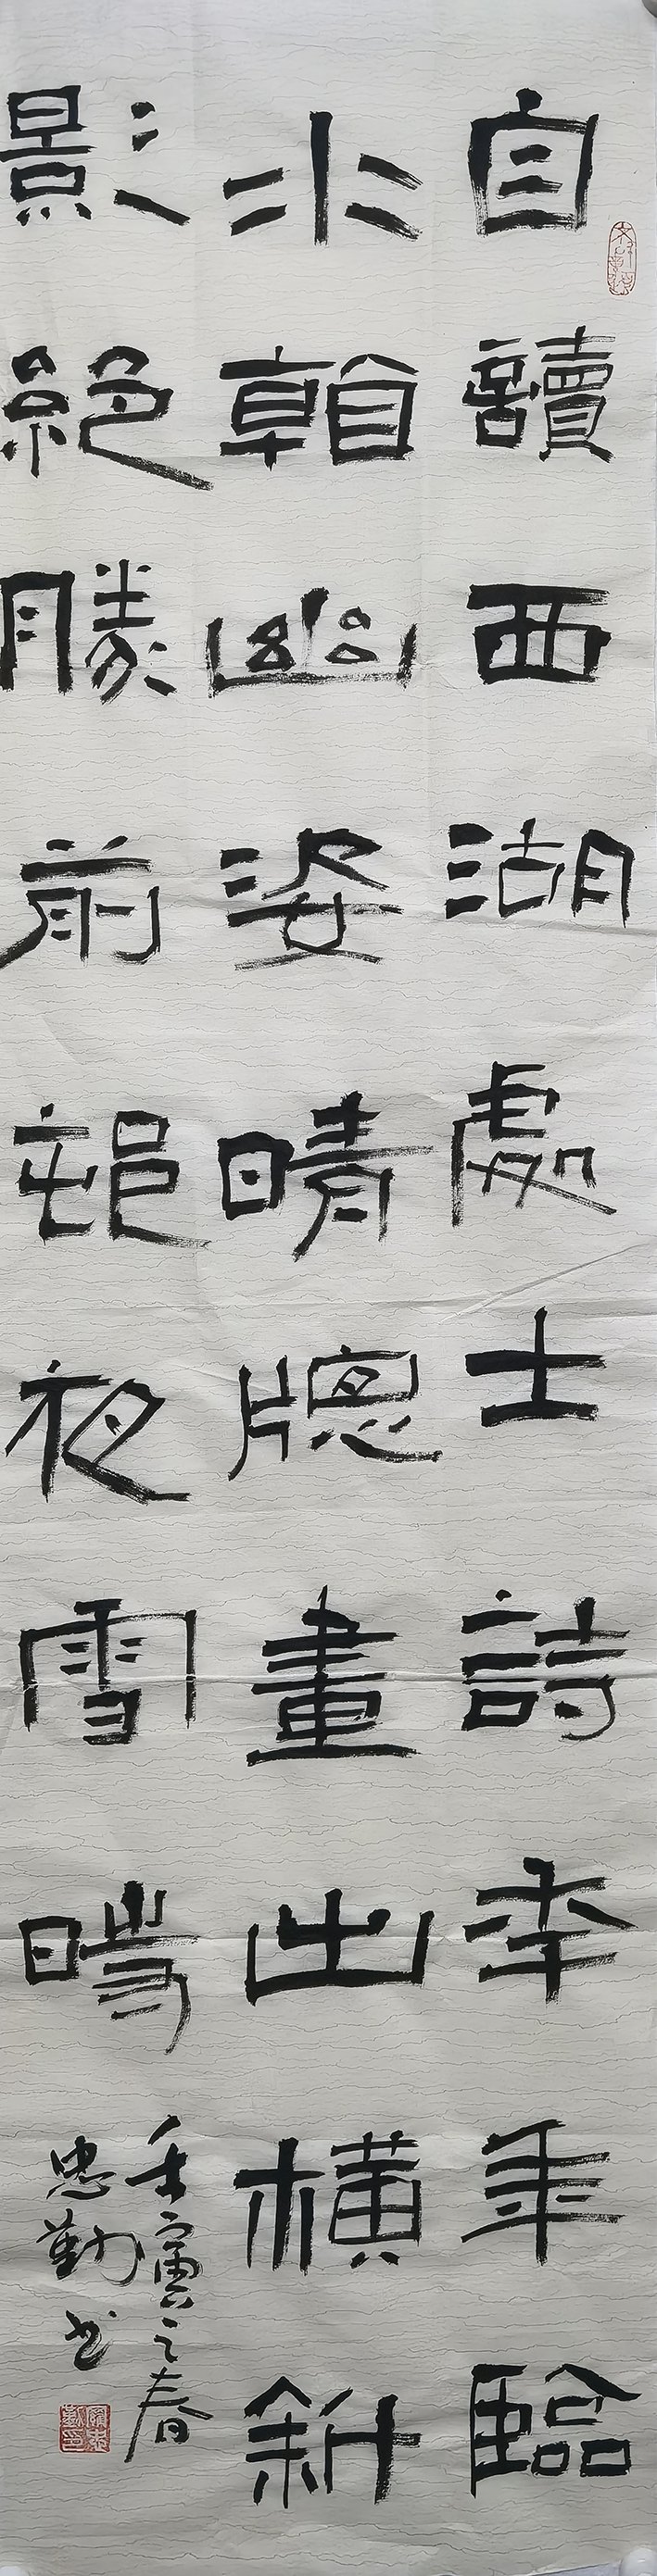 自讀西湖處士詩秊年臨
水看幽姿晴牎畫出橫斜
影絕勝前邨夜雪時
壬寅之春
忠勤书